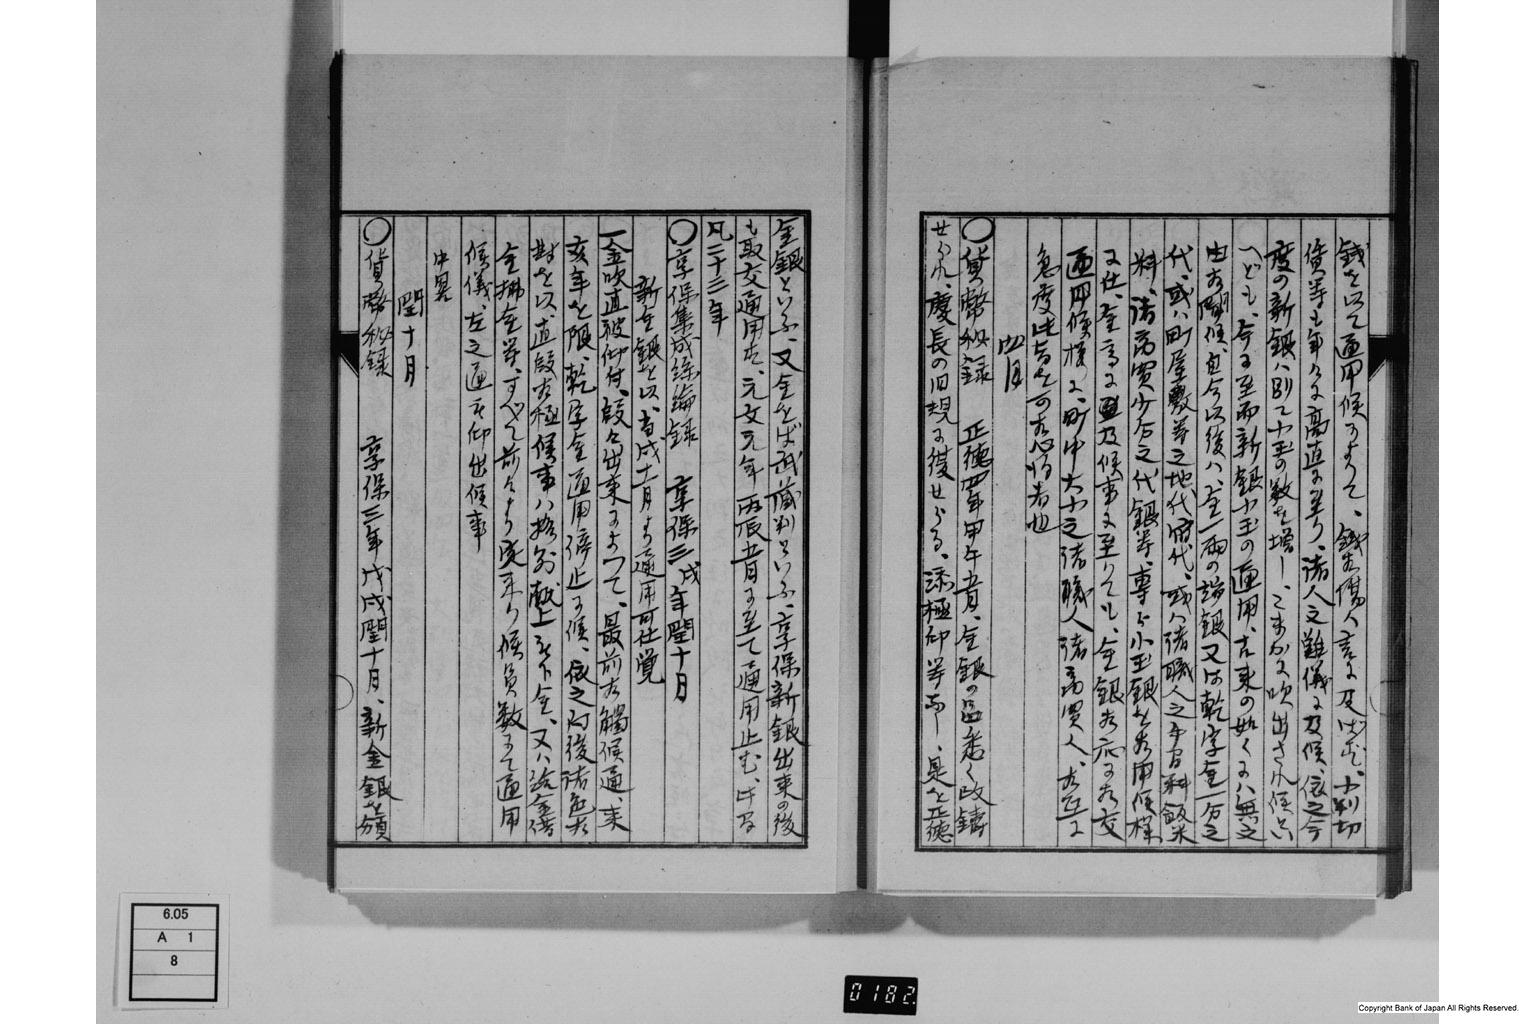 銭を以て通用候によつて、銭商傷人言に及ばず、小判切
賃等も年々に高直に至り、諸人之難儀に及候、依之今
度の新銀ハ別て小玉の数を増し、こまかに吹出され候
へども、今に至而新銀小玉の通用、古来の如くにハ無之
由相聞候、自今以後ハ、金一両の端銀又は乾字金一分之
代、或ハ町屋敷等之地代店代、或ハ諸職人之手間料飯米
料、諸商買少分之代銀等、専ら小玉銀を相用候様
に仕、金高に及候事に至りても、金銀相応に相交
通用候様に、町中大小之諸職人諸商買人、相互に
急度此旨を可相心得者也
四月
〇貨幣秘録 正徳四年甲午五月、金銀の品悉く改鋳
せられ、慶長の旧規に復せらる、添極印等なし、是を正徳
金銀といふ、又金をば武蔵判といふ、享保新銀出来の後
も取交通用す、元文元年丙辰五月に至て通用止む、此間
凡二十三年
〇享保集成絲綸録 享保三戌年閏十月
新金銀を以当戌十一月より通用可仕覚
一金吹直被仰付、段々出来によつて、最前相触候通、来
亥年を限、乾字金通用停止に候、依之向後諸色
対を以、直段相極候事ハ格別、献上被下金、又ハ給金借
金拂金等、すべて前々より定来り候員数にて通用
候儀、左之通被仰出候事
中略
閏十月
〇貨幣秘録 享保三年戊戌閏十月、新金銀を頒
6.05
A 1
8
0182
Copyright Bank of Japan All Rights Reserved.